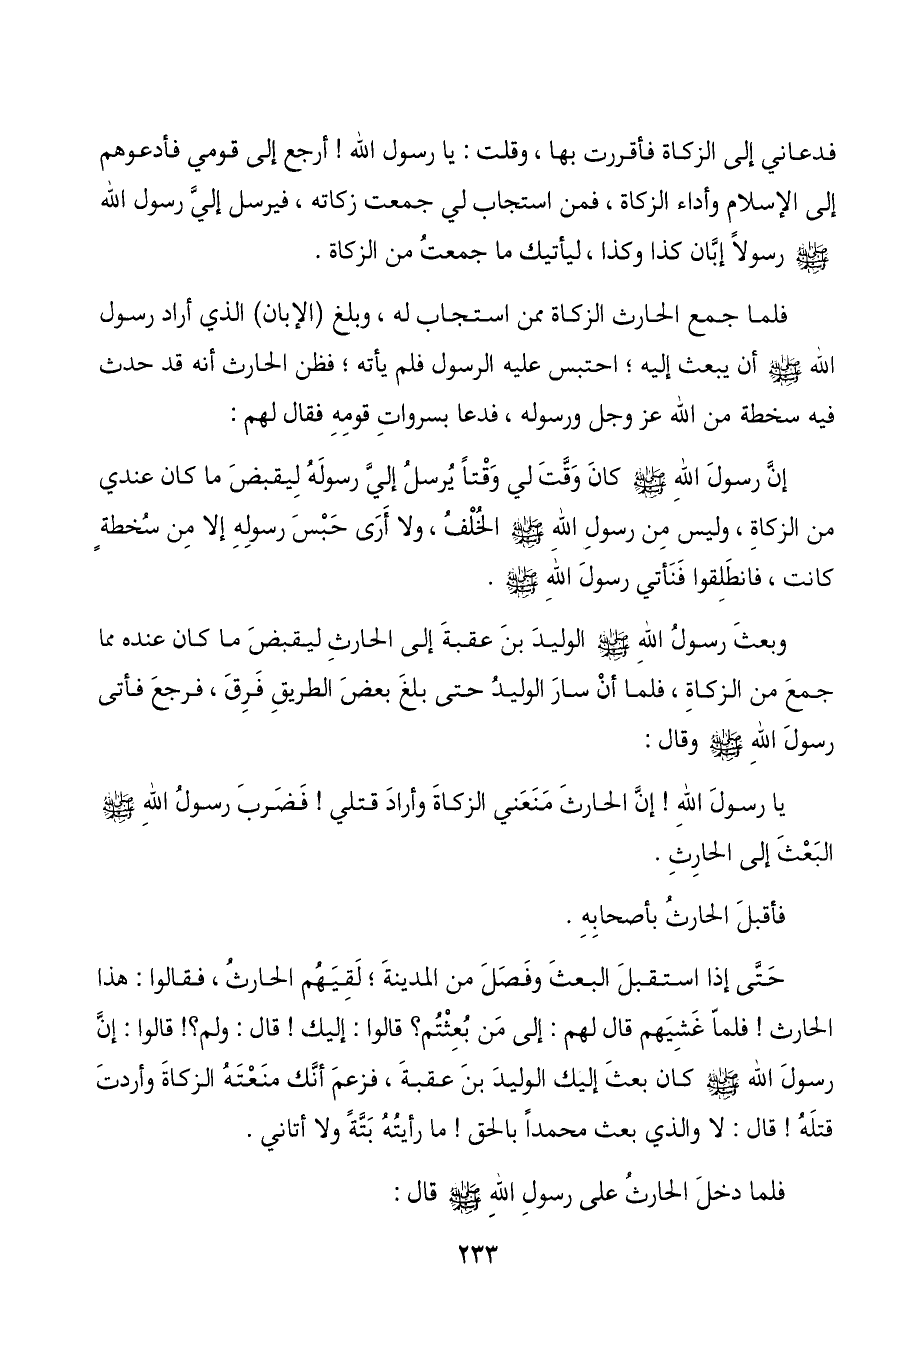 فدعاني إلى الزكاة فأقررت بها ، وقلت : يا رسول الله ! أرجع إلى قومي فأدعوهم
إلى الإسلام وأداء الزكاة ، فمن استجاب لي جمعت زكاته ، فيرسل إليَّ رسول الله
ﷺ رسولاً إبَّان كذا وكذا ، ليأتيك ما جمعتُ من الزكاة .
فلما جمع الحارث الزكاة ممن استجاب له ، وبلغ (الإبان) الذي أراد رسول
الله ﷺ أن يبعث إليه ؛ احتبس عليه الرسول فلم يأته ؛ فظن الحارث أنه قد حدث
فيه سخطة من الله عز وجل ورسوله ، فدعا بسرواتِ قومِهِ فقال لهم :
إنَّ رسولَ اللهِ ﷺ كانَ وَقَّتَ لي وَقْتاً يُرسلُ إليَّ رسولَهُ لِيقبضَ ما كان عندي
من الزكاةِ ، وليس مِن رسولِ اللهِ ﷺ الخُلْفُ ، ولا أَرَى حَبْسَ رسولِهِ إلا مِن سُخطةٍ
كانت ، فانطَلِقوا فَنَأتي رسولَ اللهِ ﷺ .
وبعثَ رسولُ اللهِ ﷺ الوليدَ بنَ عقبةَ إلى الحارثِ ليقبضَ ما كان عنده مما
جمعَ من الزكاةِ ، فلما أنْ سارَ الوليدُ حتى بلغَ بعضَ الطريقِ فَرِقَ ، فرجعَ فأتى
رسولَ اللهِ ﷺ وقال :
يا رسولَ اللهِ ! إنَّ الحارثَ مَنَعَني الزكاةَ وأرادَ قتلي ! فَضَربَ رسولُ اللهِ ﷺ
البَعْثَ إلى الحارِثِ .
فأقبلَ الحارثُ بأصحابِهِ .
حَتَّى إذا استقبلَ البعثَ وفَصَلَ من المدينةَ ؛ لَقِيَهُم الحارثُ ، فقالوا : هذا
الحارث ! فلماّ غَشِيَهم قال لهم : إلى مَن بُعِثْتُم؟ قالوا : إليك ! قال : ولم؟! قالوا : إنَّ
رسولَ الله ﷺ كان بعثَ إليك الوليدَ بنَ عقبةَ ، فزعمَ أنَّك منَعْتَهُ الزكاةَ وأردتَ
قتلَهُ ! قال : لا والذي بعث محمداً بالحق ! ما رأيتُهُ بَتَّةً ولا أتاني .
فلما دخلَ الحارثُ على رسولِ اللهِ ﷺ قال :
٢٣٣